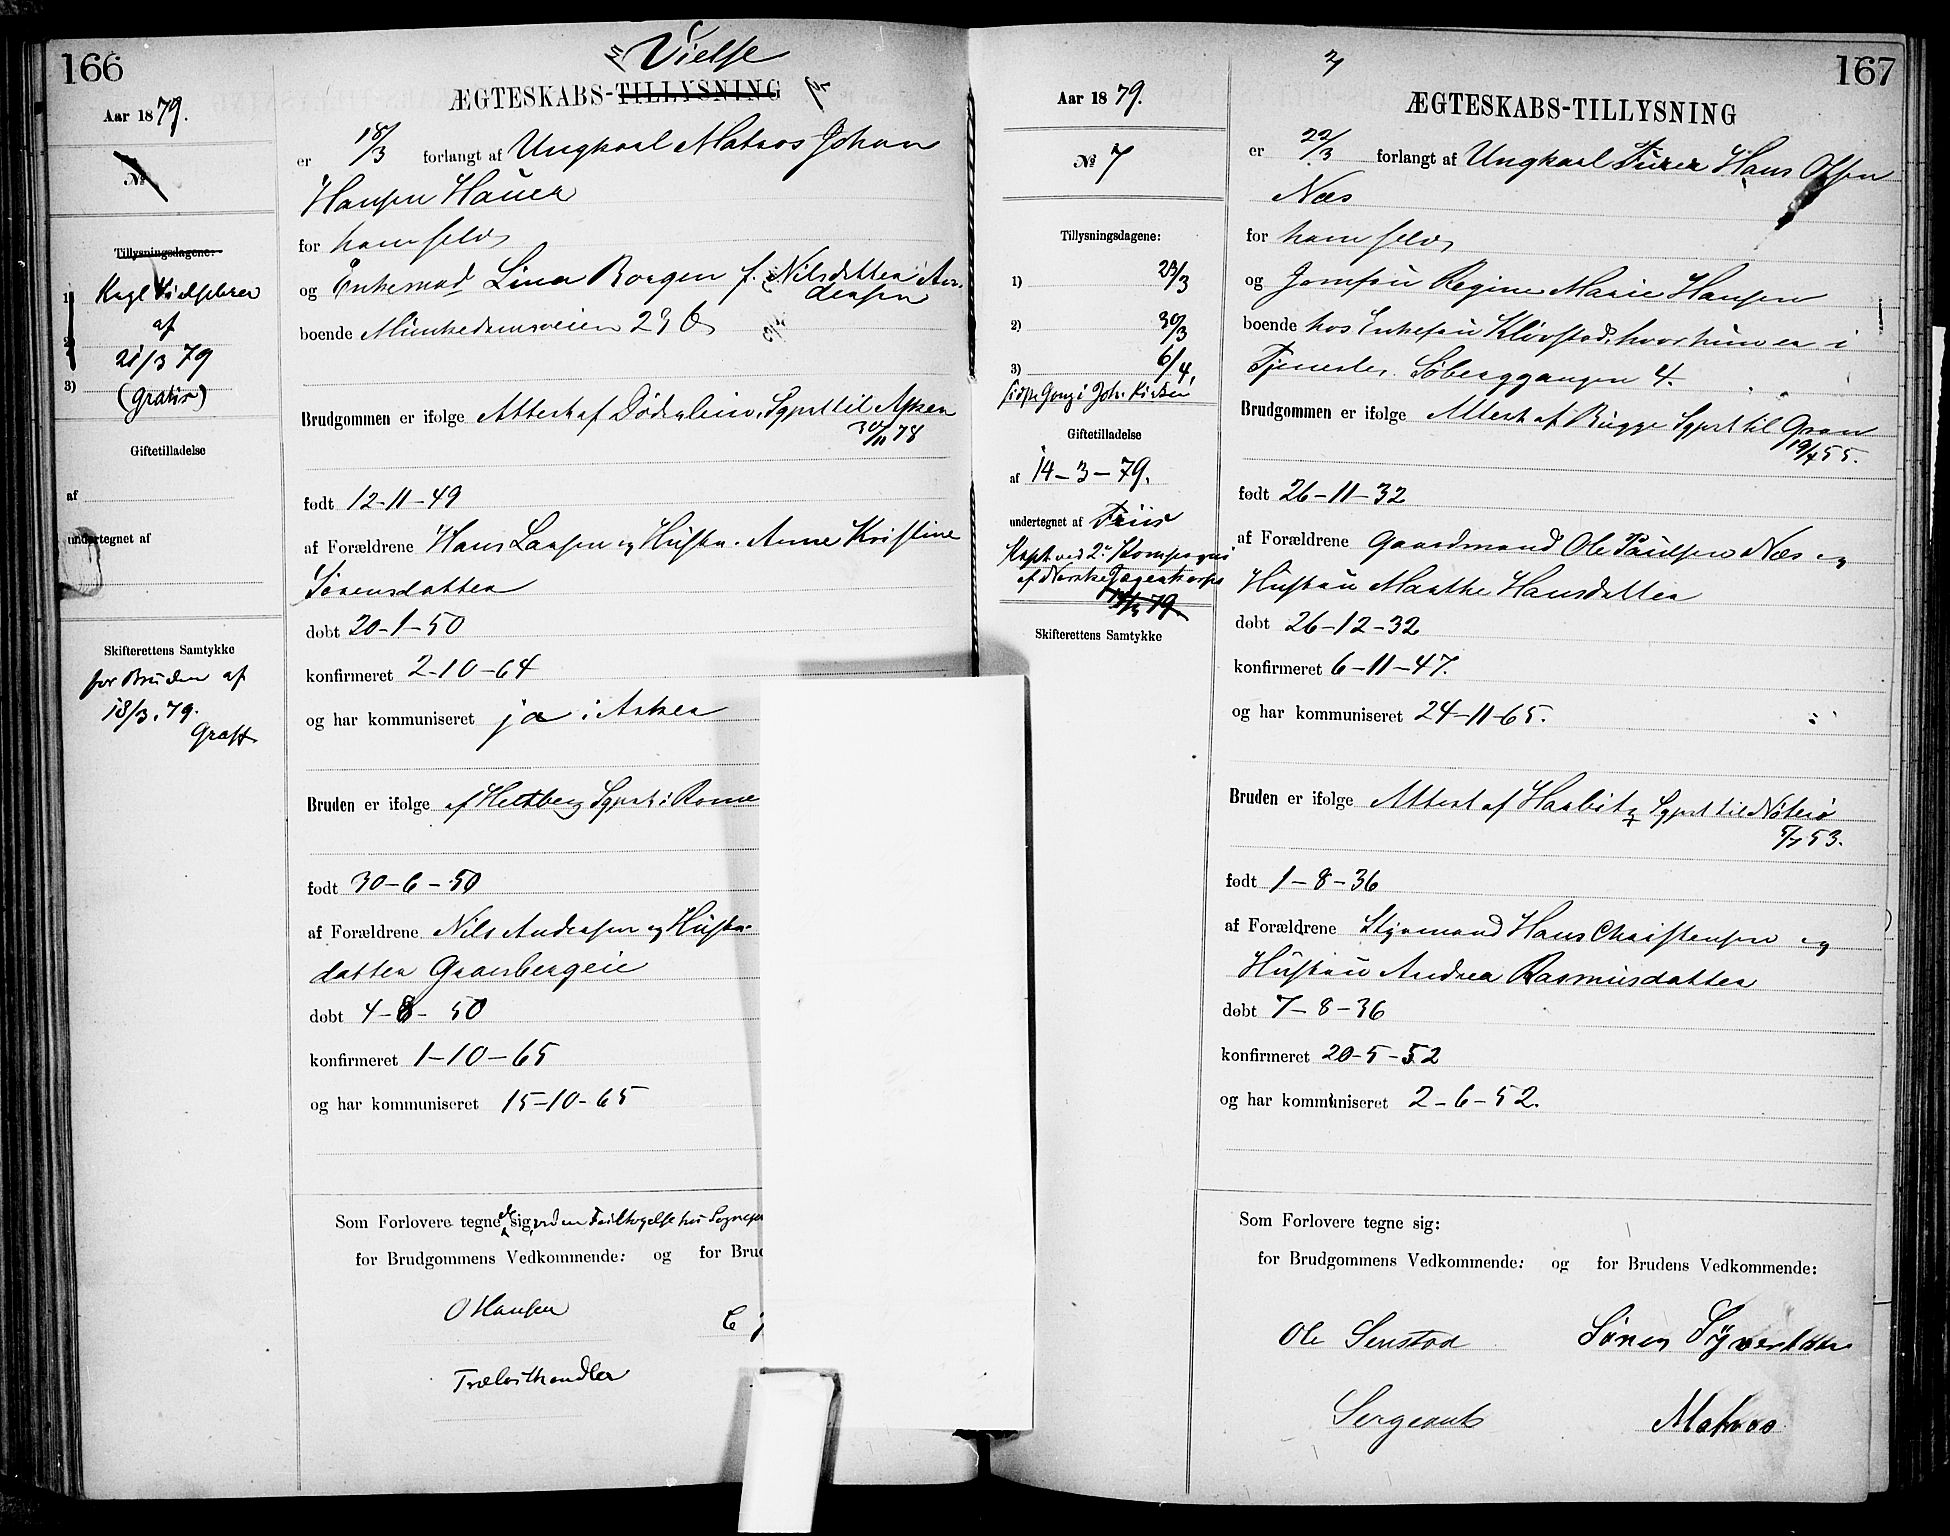 166
Vielse
ÆGTESKABS-TILLYSNING
Aar 1879.
№
er 18/3 forlangt af Ungkarl Matros Johan
Hansen Hauer
for ham selv
og Enkemad. Lina Borgen f. Nilsdatter An-
dersen
boende Munkedamsveien 23 b
Tillysningsdagene:
1)
Kngl Vielsebrev
af
2)
21/3 79
3)
(gratis)
Brudgommen er ifølge Attest af Döderlein, Sgprst til Asker
30/11 78
Giftetilladelse
af
undertegnet af
født 12-11-49
af Forældrene Hans Larsen og Hustru Anne Kristine
Sörensdatter
døbt 20-1-50
konfirmeret 2-10-64
og har kommuniseret ja i Asker
Skifterettens Samtykke
for Bruden af
18/3.79.
Graff
Bruden er ifølge af Heltberg Sgprst i Rome
født 30-6-50
af Forældrene Nils Andersen og Hustru
datter Graesbergeie
døbt 4-8-50
konfirmeret 1-10-65
og har kommuniseret 15-10-65
Som Forlovere tegnede sig, ved en
for Brudgommens Vedkommende: og for Brud
O Hansen
C
Trælasthandler
167
ÆGTESKABS-TILLYSNING
Aar 1879.
№ 7
er 22/3 forlangt af Ungkarl Furer Hans Olsen
Næs
for ham selv
og Jomfru Regine Marie Hansen
boende hos Enkefru Klövstad, hvor hun er i
Tjeneste. Söberggangen 4.
Tillysningsdagene:
1) 23/3
2) 30/3
3) 6/4,
sidste Gang i Joh. Kirken
Giftetilladelse
af 14-3-79.
undertegnet af Friis
Kapt ved 2. Kompagni
af Norske Jægerkorps
14/3 79.
Skifterettens Samtykke
Brudgommen er ifølge Attest af Bugge Sgprst til Gran
19/4 55.
født 26-11-32
af Forældrene Gaardmand Ole Paulsen Næs og
Hustru Marthe Hansdatter
døbt 26-12-32
konfirmeret 6-11-47.
og har kommuniseret 24-11-65.
Bruden er ifølge Attest af Sgprst til Nöterö
5/7 53.
født 1-8-36
af Forældrene Styrmand Hans Christensen og
Hustru Andrea Rasmusdatter
døbt 7-8-36
konfirmeret 20-5-52
og har kommuniseret 2-6-52.
Som Forlovere tegne sig:
for Brudgommens Vedkommende: og for Brudens Vedkommende:
Ole Senstad Sören Syvertsen
Sergeant Matros